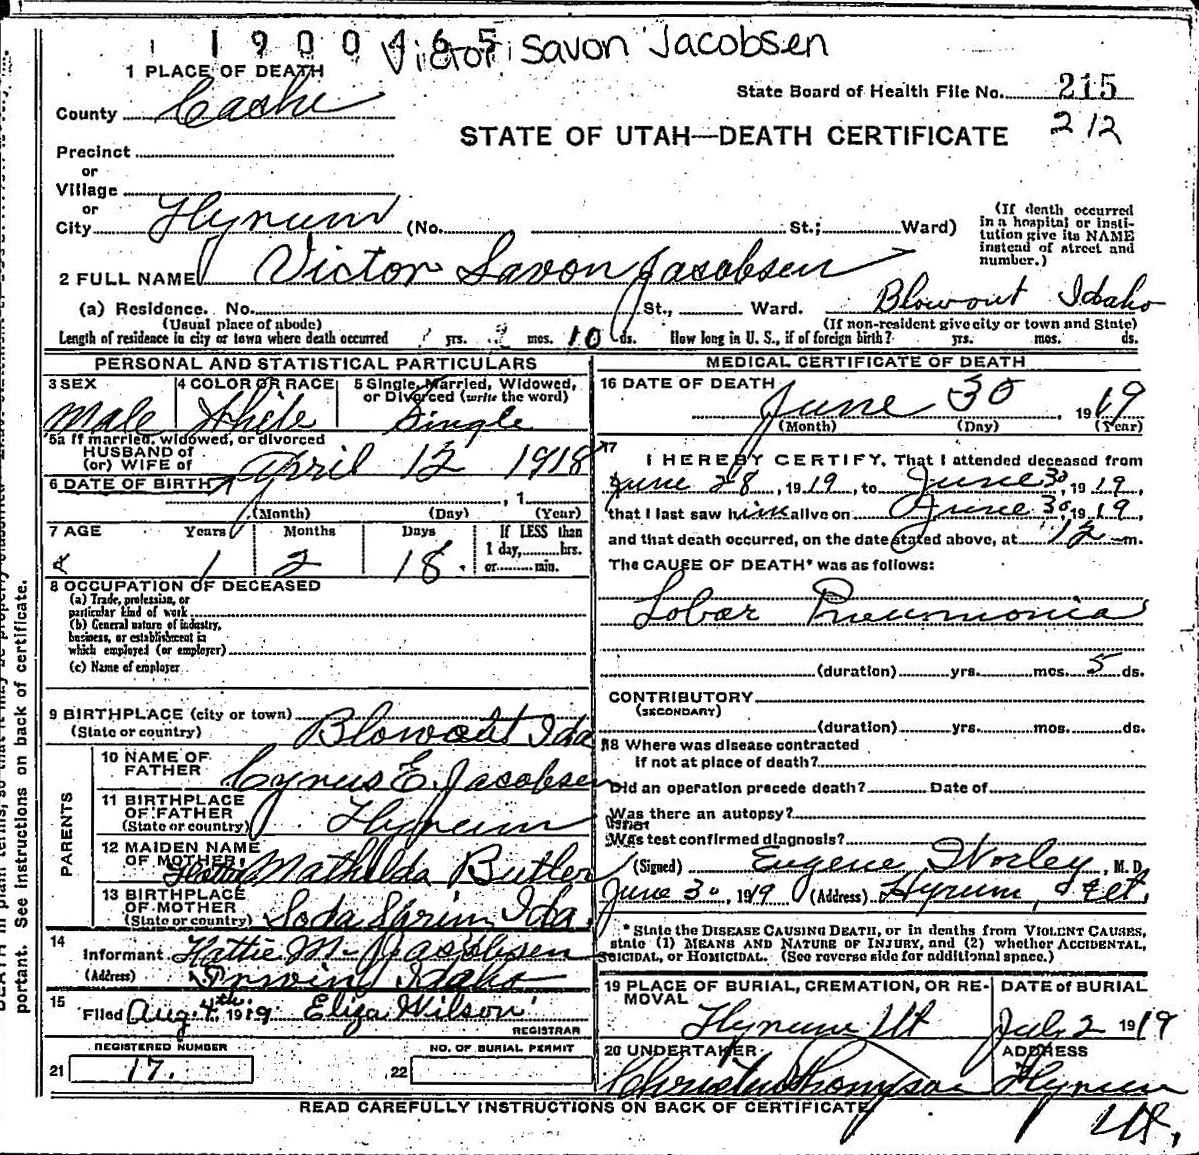 1900465
Victor Savon Jacobsen
1 PLACE OF DEATH
State Board of Health File No. 215
County Cache
212
STATE OF UTAH—DEATH CERTIFICATE
Precinct
or
Village
or
City Hyrum (No. St.; Ward)
(If death occurred in a hospital or institution give its NAME instead of street and number.)
2 FULL NAME Victor Savon Jacobsen
(a) Residence. No. St., Ward. Blowout Idaho
(Usual place of abode) (If non-resident give city or town and State)
Length of residence in city or town where death occurred yrs. mos. 10 ds. How long in U. S., if of foreign birth? yrs. mos. ds.
PERSONAL AND STATISTICAL PARTICULARS
3 SEX Male
4 COLOR OR RACE White
5 Single, Married, Widowed, or Divorced (write the word) Single
5a If married, widowed, or divorced
HUSBAND of
(or) WIFE of
April 12 1918
6 DATE OF BIRTH
, 1
(Month) (Day) (Year)
7 AGE Years Months Days If LESS than
1 day, hrs.
or min.
1 2 18.
8 OCCUPATION OF DECEASED
(a) Trade, profession, or particular kind of work
(b) General nature of industry, business, or establishment in which employed (or employer)
(c) Name of employer
9 BIRTHPLACE (city or town)
(State or country) Blowout Ida
PARENTS
10 NAME OF FATHER Cyrus E. Jacobsen
11 BIRTHPLACE OF FATHER
(State or country) Hyrum
12 MAIDEN NAME OF MOTHER Hattie Mathilda Butler
13 BIRTHPLACE OF MOTHER
(State or country) Soda Sprins Ida.
14
Informant Hattie M. Jacobsen
(Address) Irwin, Idaho
15
Filed Aug. 4th, 1919 Eliza Wilson
REGISTRAR
REGISTERED NUMBER NO. OF BURIAL PERMIT
21 17. 22
MEDICAL CERTIFICATE OF DEATH
16 DATE OF DEATH
June 30, 1919
(Month) (Day) (Year)
17
I HEREBY CERTIFY, That I attended deceased from
June 28, 1919, to June 30, 1919,
that I last saw him alive on June 30, 1919,
and that death occurred, on the date stated above, at 12 m.
The CAUSE OF DEATH* was as follows:
Lobar Pneumonia
(duration) yrs. mos. 5 ds.
CONTRIBUTORY
(SECONDARY)
(duration) yrs. mos. ds.
18 Where was disease contracted
if not at place of death?
Did an operation precede death? Date of
Was there an autopsy?
What test confirmed diagnosis?
(Signed) Eugene Worley, M. D.
June 30, 1919 (Address) Hyrum, Utt.
* State the DISEASE CAUSING DEATH, or in deaths from VIOLENT CAUSES,
state (1) MEANS AND NATURE OF INJURY, and (2) whether ACCIDENTAL,
SUICIDAL, or HOMICIDAL. (See reverse side for additional space.)
19 PLACE OF BURIAL, CREMATION, OR REMOVAL
Hyrum Ut
DATE of BURIAL
July 2 1919
20 UNDERTAKER
ADDRESS
Hyrum
Ut.
READ CAREFULLY INSTRUCTIONS ON BACK OF CERTIFICATE
portant. See instructions on back of certificate.